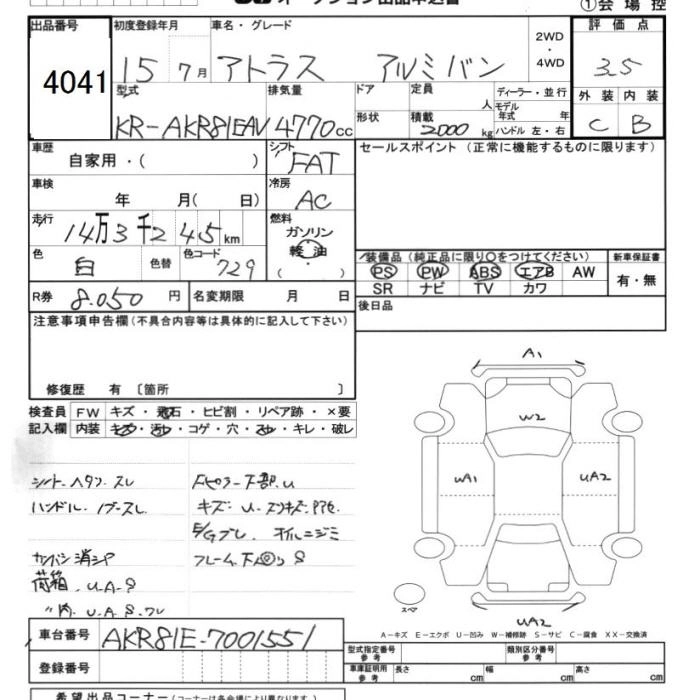 オークション出品申込書
①会場控
出品番号 初度登録年月 車名・グレード 2WD・4WD 評価点
4041 15 7月 アトラス アルミバン 3.5
型式 排気量 ドア 定員 人 ディーラー・並行 外装 内装
KR-AKR81EAV 4770cc 形状 積載 2000kg モデル年式 年 ハンドル 左・右 C B
車歴 自家用・( ) シフト FAT セールスポイント(正常に機能するものに限ります)
車検 年 月( 日) 冷房 AC
走行 14万3千245km 燃料 ガソリン 軽油 ( )
色 白 色替 色コード 729 装備品(純正品に限り〇をつけてください) 新車保証書
PS PW ABS エアB AW 有・無
SR ナビ TV カワ
R券 8.050円 名変期限 月 日 後日品
注意事項申告欄(不具合内容等は具体的に記入して下さい)
修復歴 有 〔箇所 〕
検査員 FW キズ・飛石・ヒビ割・リペア跡・×要
記入欄 内装 キズ・汚レ・コゲ・穴・スレ・キレ・破レ
A1
W2
WA1 UA2
UA2
スペア
シート ヘタリ.スレ Fピラー下部.U
ハンドル.ノブスレ キズ
オイルニジミ
カンバン消シア フレーム.下廻り S
荷箱.U.A.S
〃内.U.A.S.ワレ
A－キズ E－エクボ U－凹み W－補修跡 S－サビ C－腐食 XX－交換済
車台番号 AKR81E-7001551
登録番号
型式指定番号 参考 類別区分番号 参考
車庫証明用 参考 長さ cm 幅 cm 高さ cm
希望出品コーナー(コーナーは各会場により異なります)